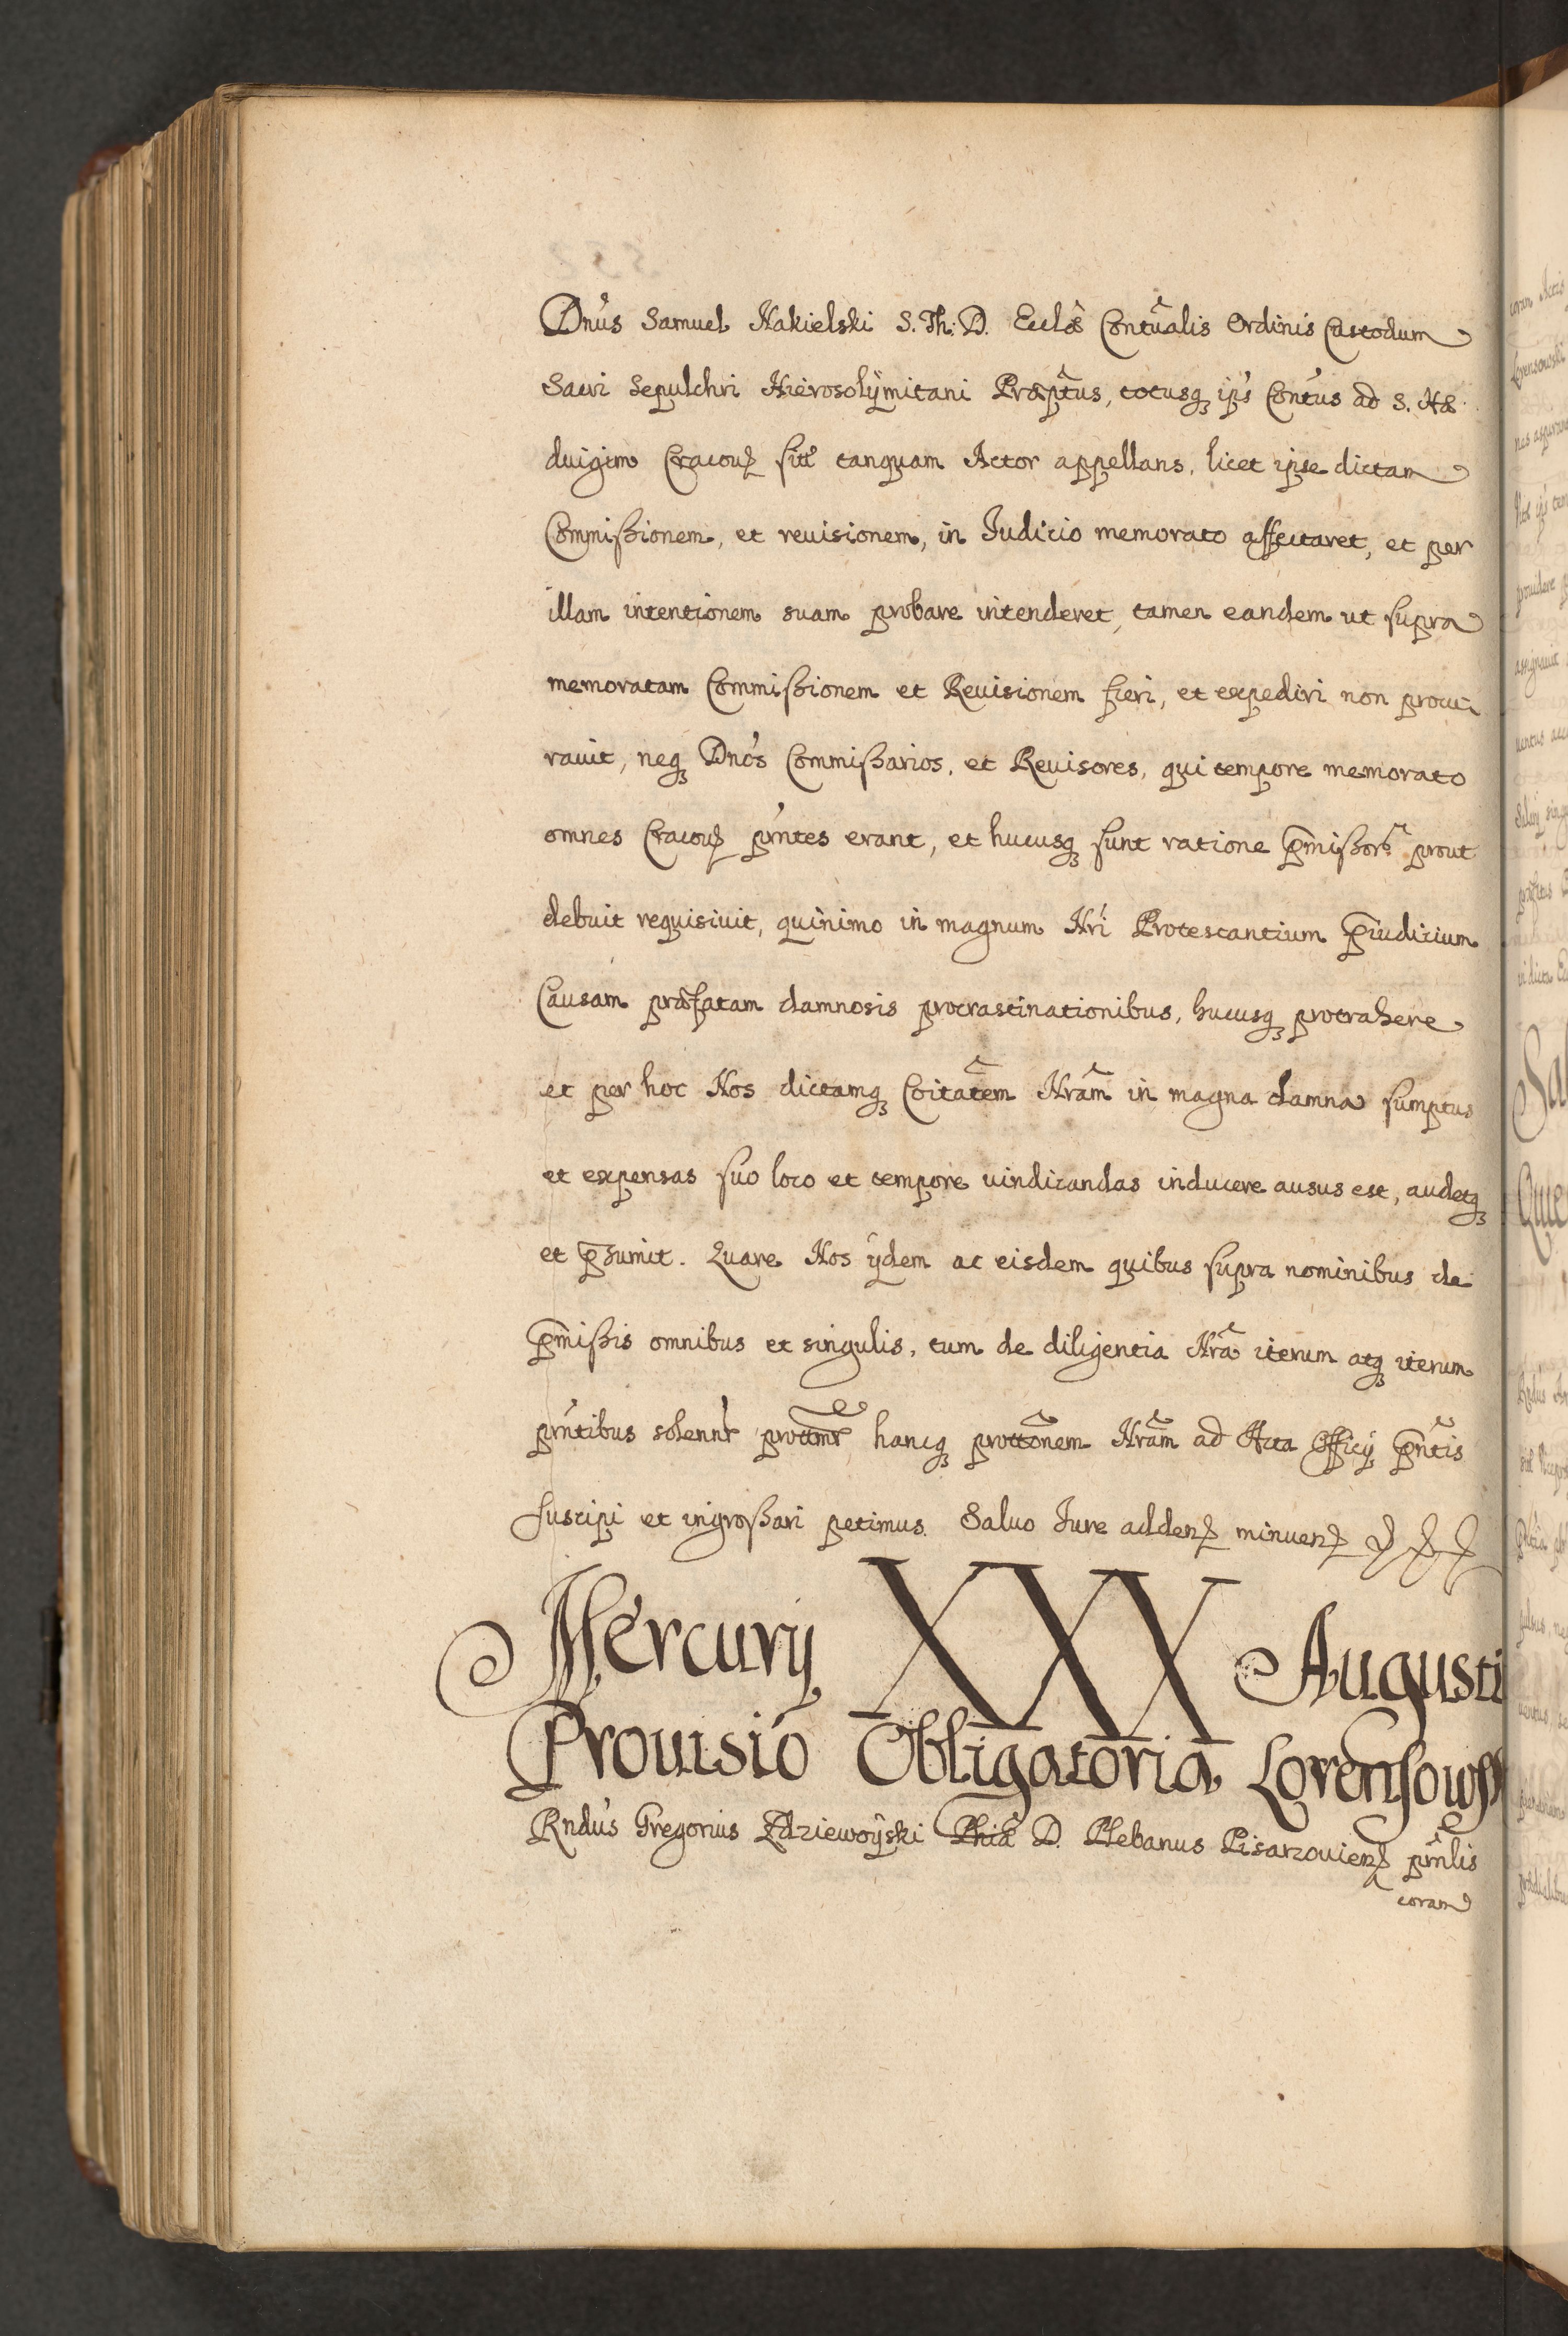 Dnus Samuel Nakielski S. Th: D. Ecclae Contualis Ordinis Custodum
Sacri Sepulchri Hierosolÿmitani Praeptus, totusq ips Contus ad S. Hae
duigim Cracou siti tanquam Actor appellans, licet ipse dictam
Commißionem, et reuisionem, in Iudicio memorato affectaret, et per
illam intentionem suam probare intenderet, tamen eandem ut supra
memoratam Commißionem et Reuisionem fieri, et expediri non procu-
rauit, neq Dnos Commißarios, et Reuisores, qui tempore memorato
omnes Cracou pntes erant, et hucusq sunt ratione pmißor prout
debuit requisiuit, quinimo in magnum Nri Protestantium piudicium
Causam praefatam damnosis procrastinationibus, hucusq protrahere
et per hoc Nos dictamq Coitatem Nram in magna damna sumptus
et expensas suo loco et tempore uindicandas inducere ausus est, audetq
et psumit. Quare Nos ijdem ac eisdem quibus supra nominibus de
pmißis omnibus et singulis, tum de diligentia Nra iterum atq iterum
pntibus solennr prottmr hancq prottonem Nram ad Acta Officij pntis
suscipi et ingroßari petimus. Saluo Iure adden minuen
Mercurij XXX Augusti
Prouisio Obligatoria Lorensowsk
Rndus Gregorius Zdziewoÿski Phiae D. Plebanus Pisarzouien pnlis
coram